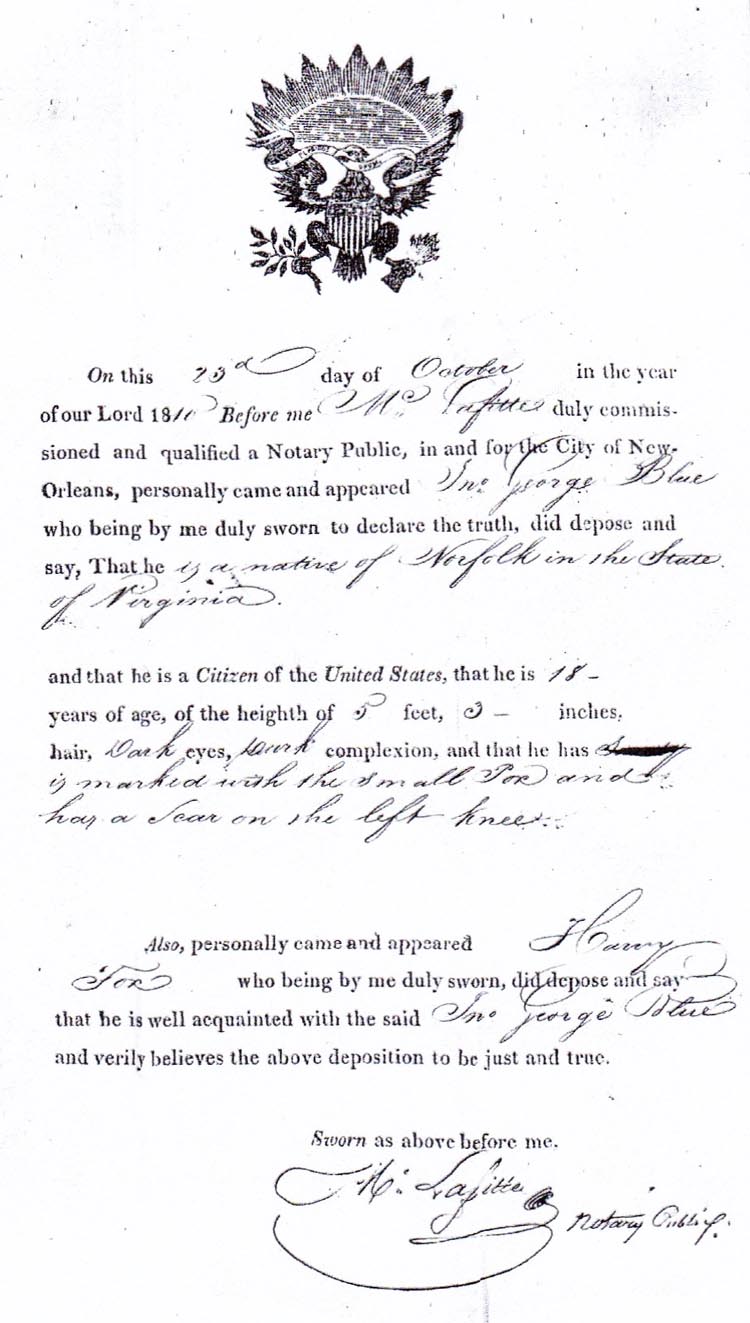 On this 23d day of October in the year
of our Lord 1810 Before me Mc Lafitte duly commis-
sioned and qualified a Notary Public, in and for the City of New-
Orleans, personally came and appeared Jno George Blue
who being by me duly sworn to declare the truth, did depose and
say, That he is a native of Norfolk in the State
of Virginia.
and that he is a Citizen of the United States, that he is 18 -
years of age, of the heighth of 5 feet, 3 - inches,
hair, Dark eyes, Dark complexion, and that he has
is marked with the small Pox and
has a Scar on the left knee.
Also, personally came and appeared Harry
Fox who being by me duly sworn, did depose and say
that he is well acquainted with the said Jno George Blue
and verily believes the above deposition to be just and true.
Sworn as above before me.
Mc Lafitte
Notary Public.